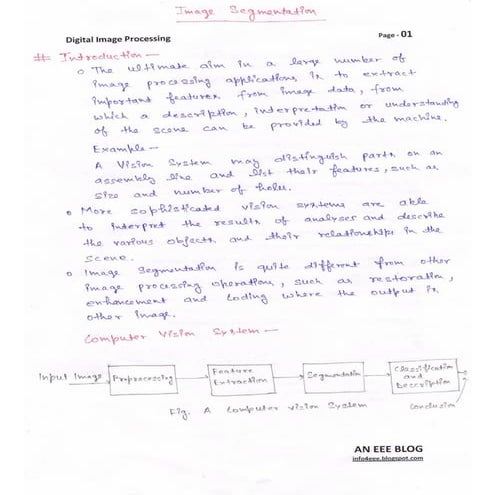 Image Segmentation
Digital Image Processing
Page - 01
# Introduction —
o The ultimate aim in a large number of
image processing applications is to extract
important features from image data, from
which a description, interpretation or understanding
of the scene can be provided by the machine.
Example —
A Vision System may distinguish parts on an
assembly line and list their features, such as
size and number of holes.
o More sophisticated vision systems are able
to interpret the results of analyses and describe
the various objects and their relationships in the
scene.
o Image Segmentation is quite different from other
image processing operations, such as restoration,
enhancement and coding where the output is
other image.
Computer Vision System —
Input Image
Preprocessing
Feature
Extraction
Segmentation
Classification
and
Description
Conclusion
Fig. A Computer Vision System
AN EEE BLOG
info4eee.blogspot.com